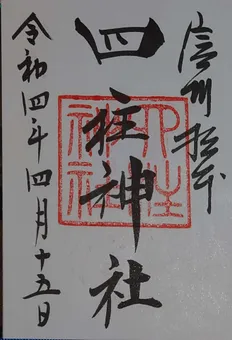 信州松本
四柱神社
令和四年四月十五日
四柱神社